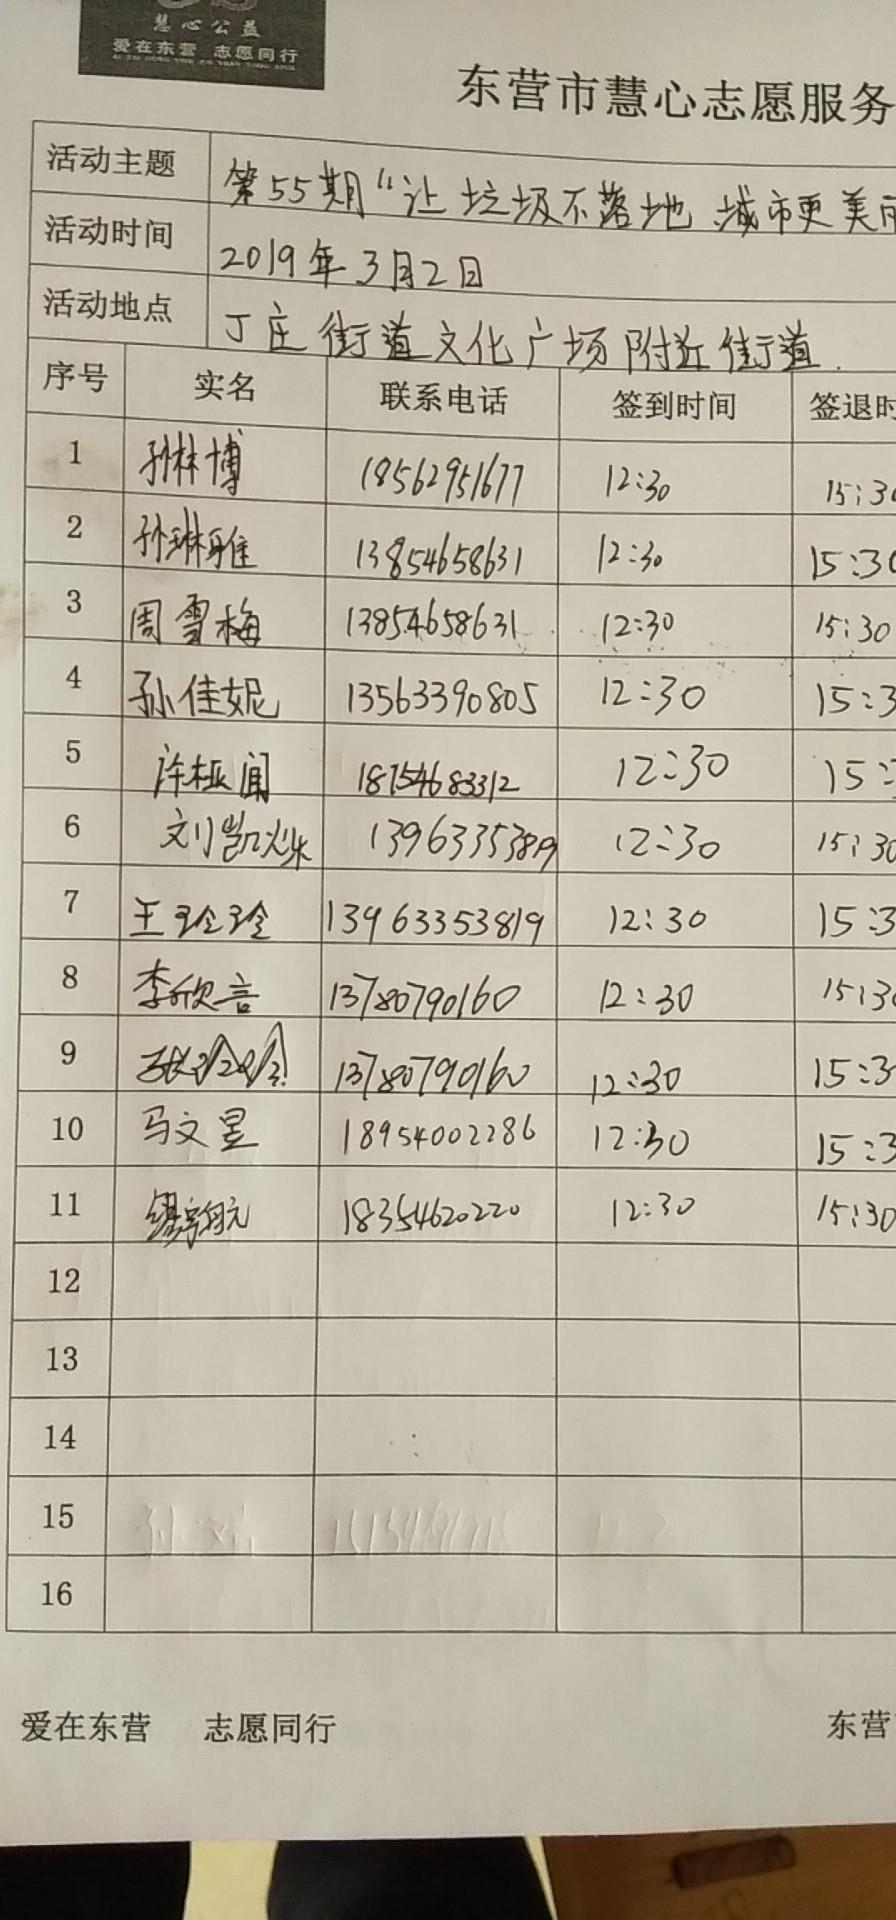 慧心公益
爱在东营 志愿同行
东营市慧心志愿服务
活动主题 第55期“让垃圾不落地 城市更美丽
活动时间 2019年3月2日
活动地点 丁庄街道文化广场附近街道.
序号 实名 联系电话 签到时间 签退时
1 孙林博 18562951677 12:30 15:30
2 孙琳雅 13854658631 12:30 15:30
3 周雪梅 13854658631 12:30 15:30
4 孙佳妮 13563390805 12:30 15:3
5 许桠闻 18754683312 12:30 15:
6 刘凯烁 12:30 15:30
7 王玲玲 13963353819 12:30 15:3
8 李欣言 13780790160 12:30 15:30
9 13780790160 12:30 15:3
10 马文昱 18954002286 12:30 15:3
11 18354620220 12:30 15:30
12
13
14
15
16
爱在东营 志愿同行 东营